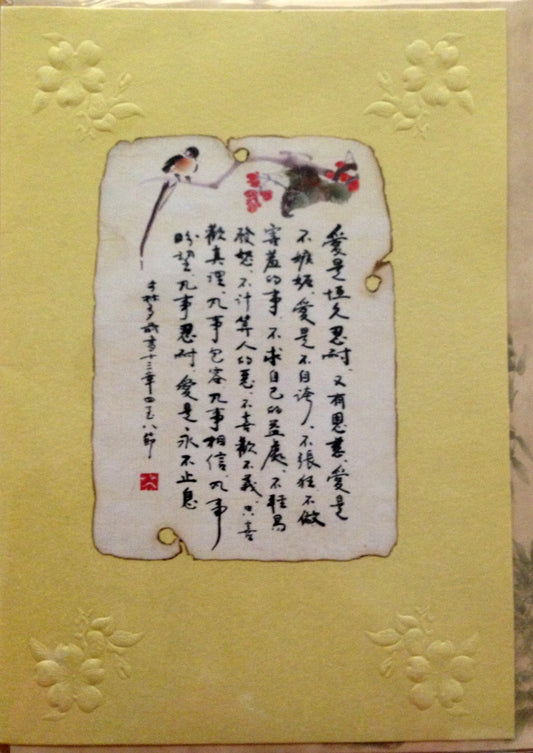 愛是恒久忍耐、又有恩慈、愛是
不嫉妬、愛是不自誇、不張狂不做
害羞的事、不求自己的益處、不輕易
發怒、不計算人的惡、不喜歡不義、只喜
歡真理、凡事包容凡事相信、凡事
盼望、凡事忍耐 愛是永不止息
哥林多前書十三章四至八節